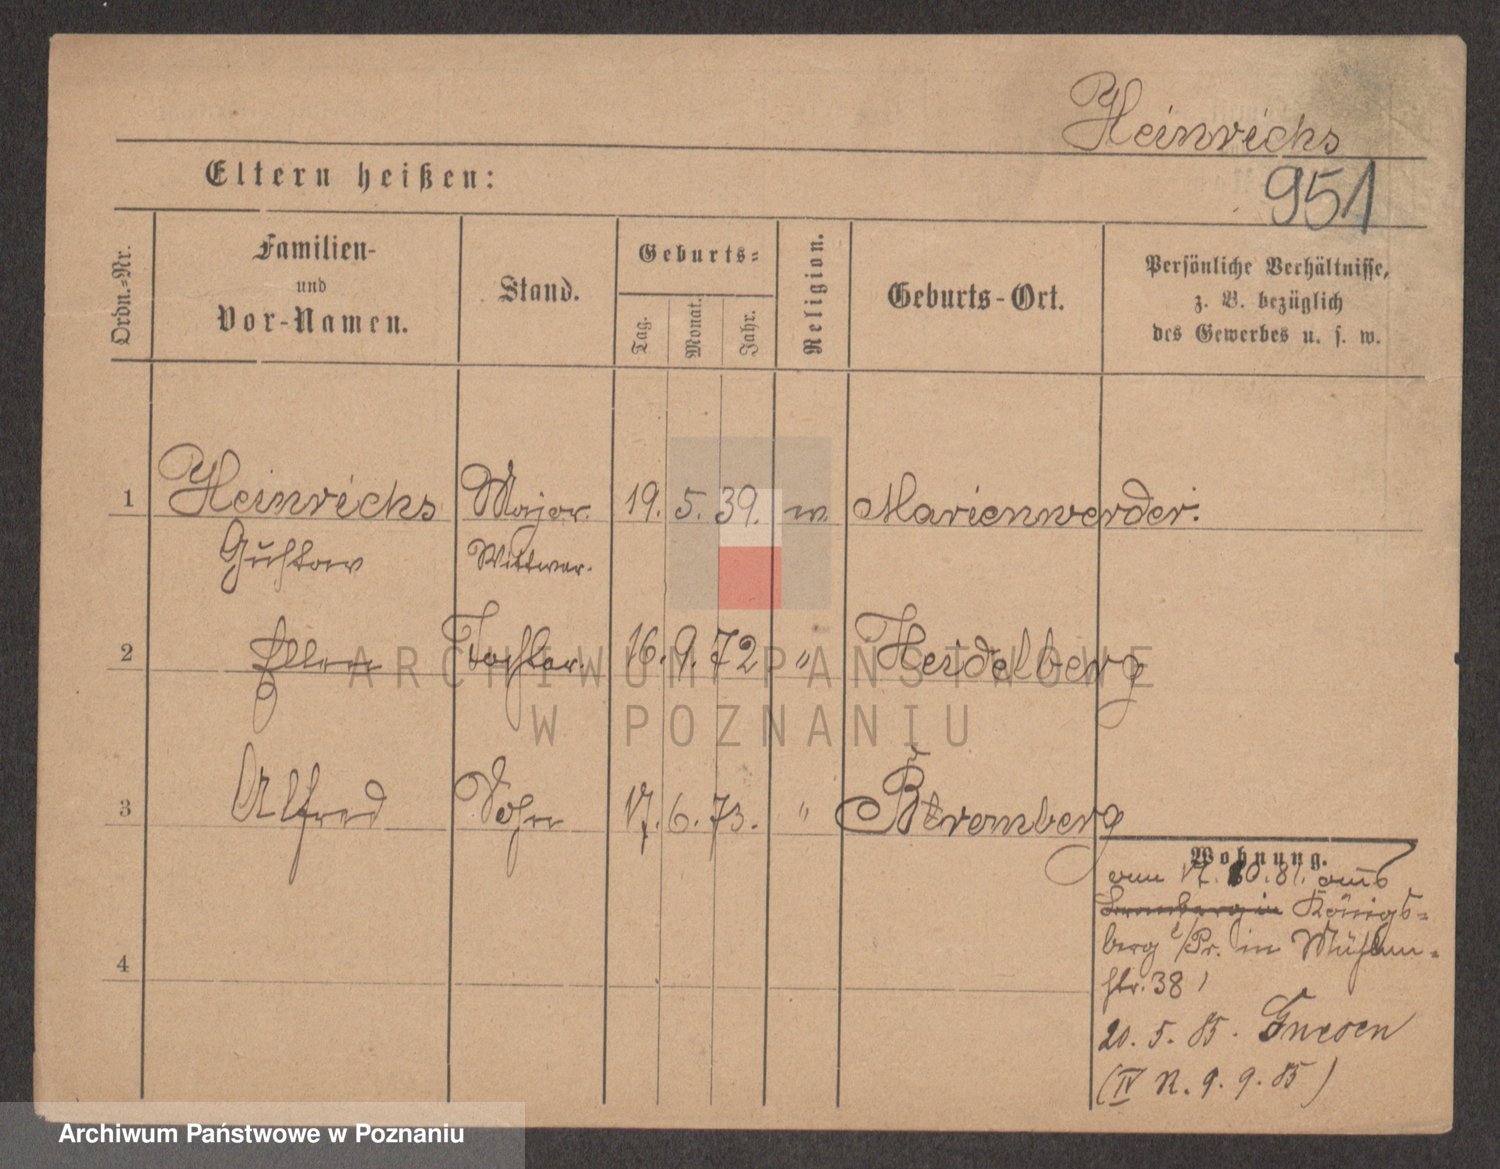 Heinrichs
Eltern heißen:
951
Ordn.-Nr.
Familien-
und
Vor-Namen.
Stand.
Geburts-
Tag.
Monat.
Jahr.
Religion.
Geburts-Ort.
Persönliche Verhältnisse,
z. B. bezüglich
des Gewerbes u. s. w.
1 Heinrichs Major. 19. 5. 39. Marienwerder.
Gustav Wittwer.
2 Ellen Tochter. 16. 9. 72 " Heidelberg
3 Alfred Sohn 17. 6. 73. " Bromberg
4
Wohnung.
am 17. 10. 81. aus
Bromberg in Königs-
berg i/Pr. in Mühlen-
str. 38
20. 5. 85. Gnesen
(IV N. 9. 9. 85)
ARCHIWUM PAŃSTWOWE
W POZNANIU
Archiwum Państwowe w Poznaniu